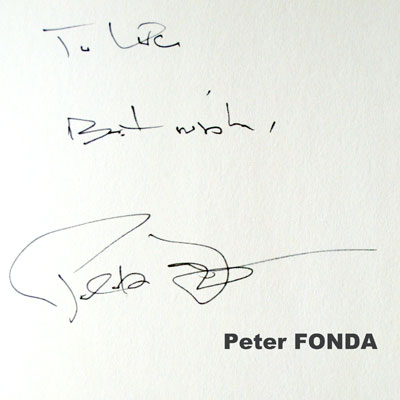 To Luca
Best wishes,
Peter Fonda
Peter FONDA